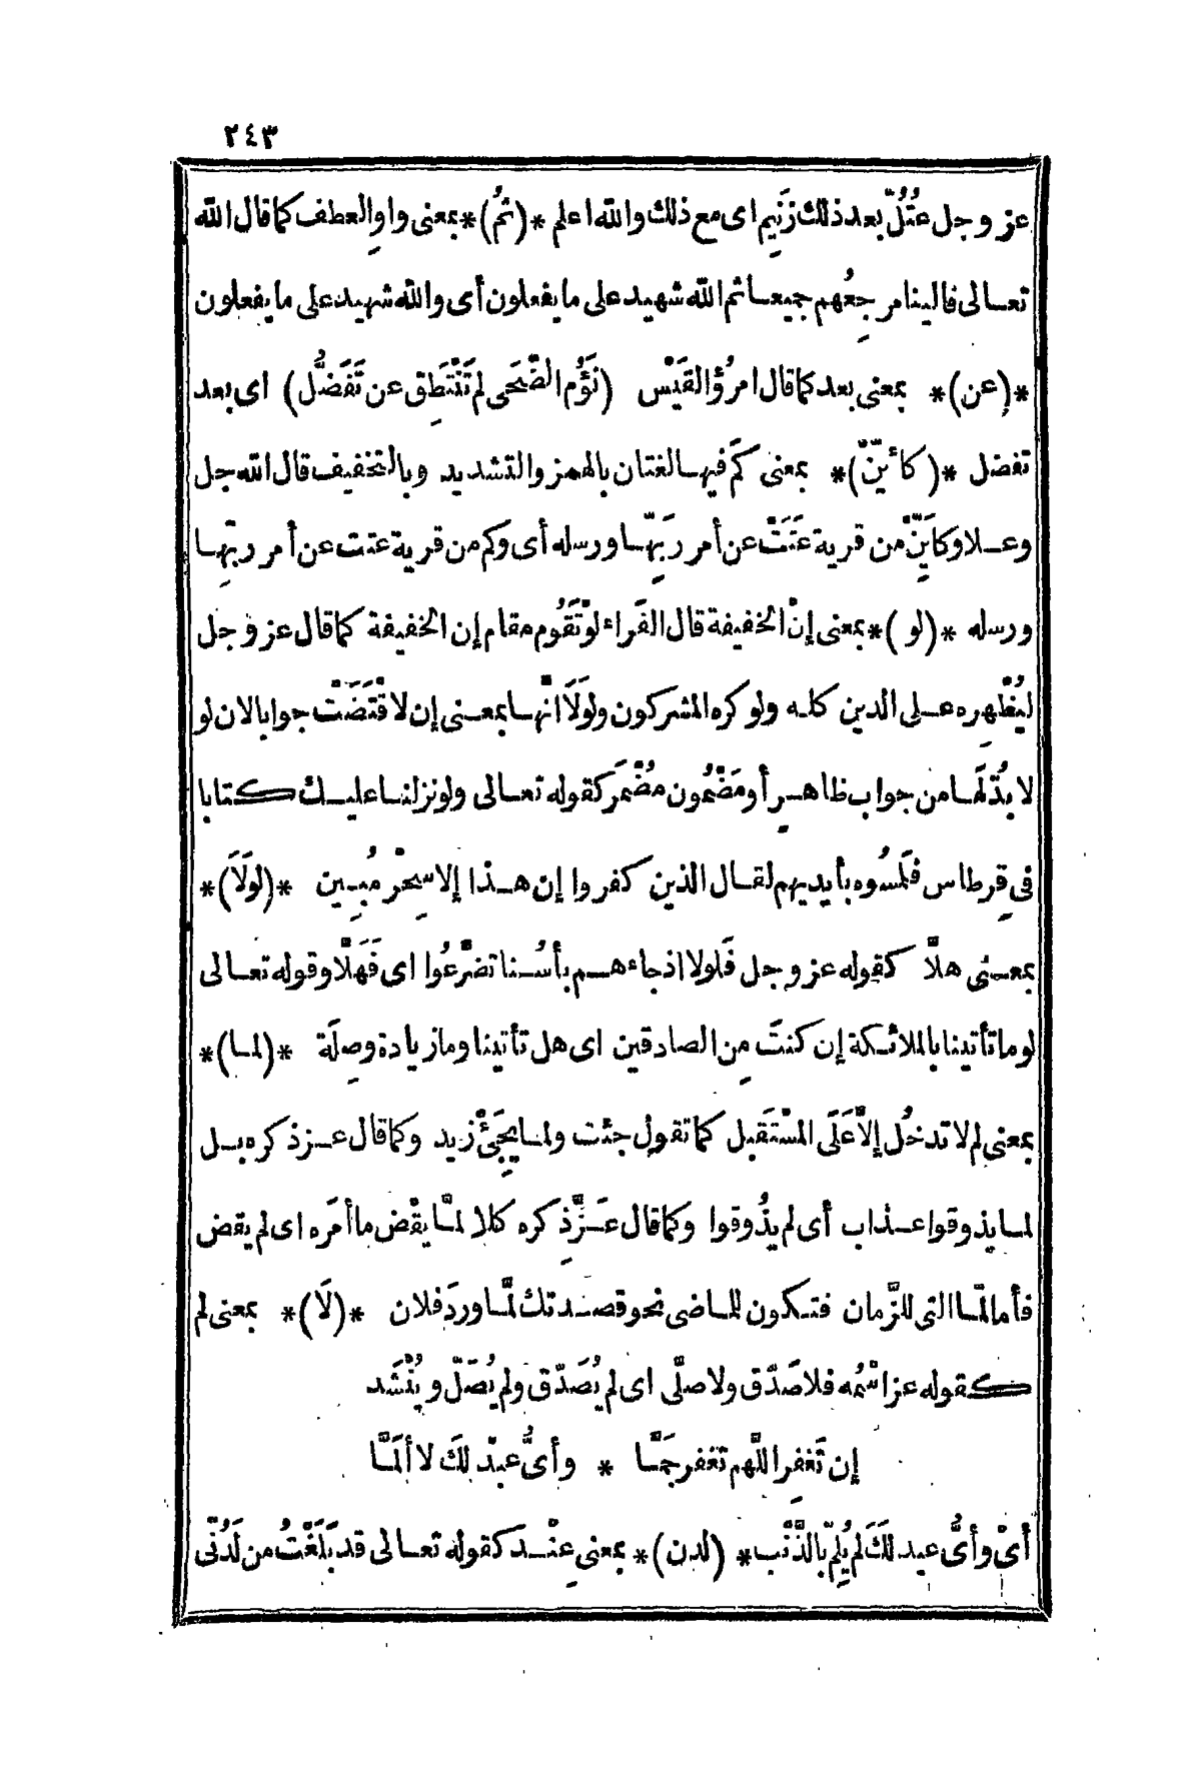 ٢٤٣
عز وجل عُتُلّ بعد ذلك زَنِيم اى مع ذلك والله اعلم *(ثُم)* بمعنى واوِ العطف كما قال الله
تعالى فالينا مرجِعُهم جميعا ثم الله شهيد على ما يفعلون أى والله شهيد على ما يفعلون
*(عن)* بمعنى بعد كما قال امرُؤ القَيْس (نَؤُم الضُّحَى لم تَنْتَطِق عن تَفَضُّل) اى بعد
تفضل *(كأيّنّ)* بمعنى كَم فيها لغتان بالهمز والتشديد وبالتخفيف قال الله جل
وعلا وكَأيِّنْ من قرية عَتَتْ عن أمر رَبِّها ورسله أى وكم من قرية عتت عن أمر ربّها
ورسله *(لو)* بمعنى إنْ الخفيفة قال الفَراء لوْ تَقُوم مقام إن الخفيفة كما قال عز وجل
ليُظْهِره على الدين كله ولو كره المشركون ولَولَا انْها بمعنى إن لاقْتَضَتْ جوابا لان لو
لا بُدّ لَها من جواب ظاهِر أو مَضْمُون مُضْمَر كقوله تعالى ولو نزلنا عليك كتابا
فى قِرطاس فلَمسُوه بأيديهم لقال الذين كفروا إن هذا إلا سِحْر مُبِين *(لولَا)*
بمعنى هلاَّ كقوله عز وجل فَلولا اذ جاءهم بأسُنا تضرَّعُوا اى فَهَلَّا وقوله تعالى
لو ما تأتينا بالملائكة إن كنتَ مِن الصادقين اى هل تأتينا وما زيادة وصِلَة *(لما)*
بمعنى لم لا تدخُل إلاَّ عَلَى المسْتَقبل كما تقول جئت ولما يَجِئْ زيد وكما قال عز ذكره بل
لما يذوقوا عذاب أى لم يذُوقوا وكما قال عَزَّ ذِكره كلا لمَّا يقْض ما أمَره اى لم يقض
فأما لمّا التى للزَّمان فتكون للماضى نحو قصدتك لمَّا وردَ فلان *(لَا)* بمعنى لم
كقوله عز اسْمُه فلا صَدَّق ولا صلَّى اى لم يُصَدّق ولم يُصَلّ ويُنْشَد
إن تَغفِر اللَّهم تغفر جَمَّا * وأىُّ عبْد لكَ لا ألَمَّا
أىْ وأىُّ عبد لكَ لم يُلِمّ بالذَّنْب *(لدن)* بمعنى عِنْد كقوله تعالى قد بَلَغْتُ من لَدُنّى